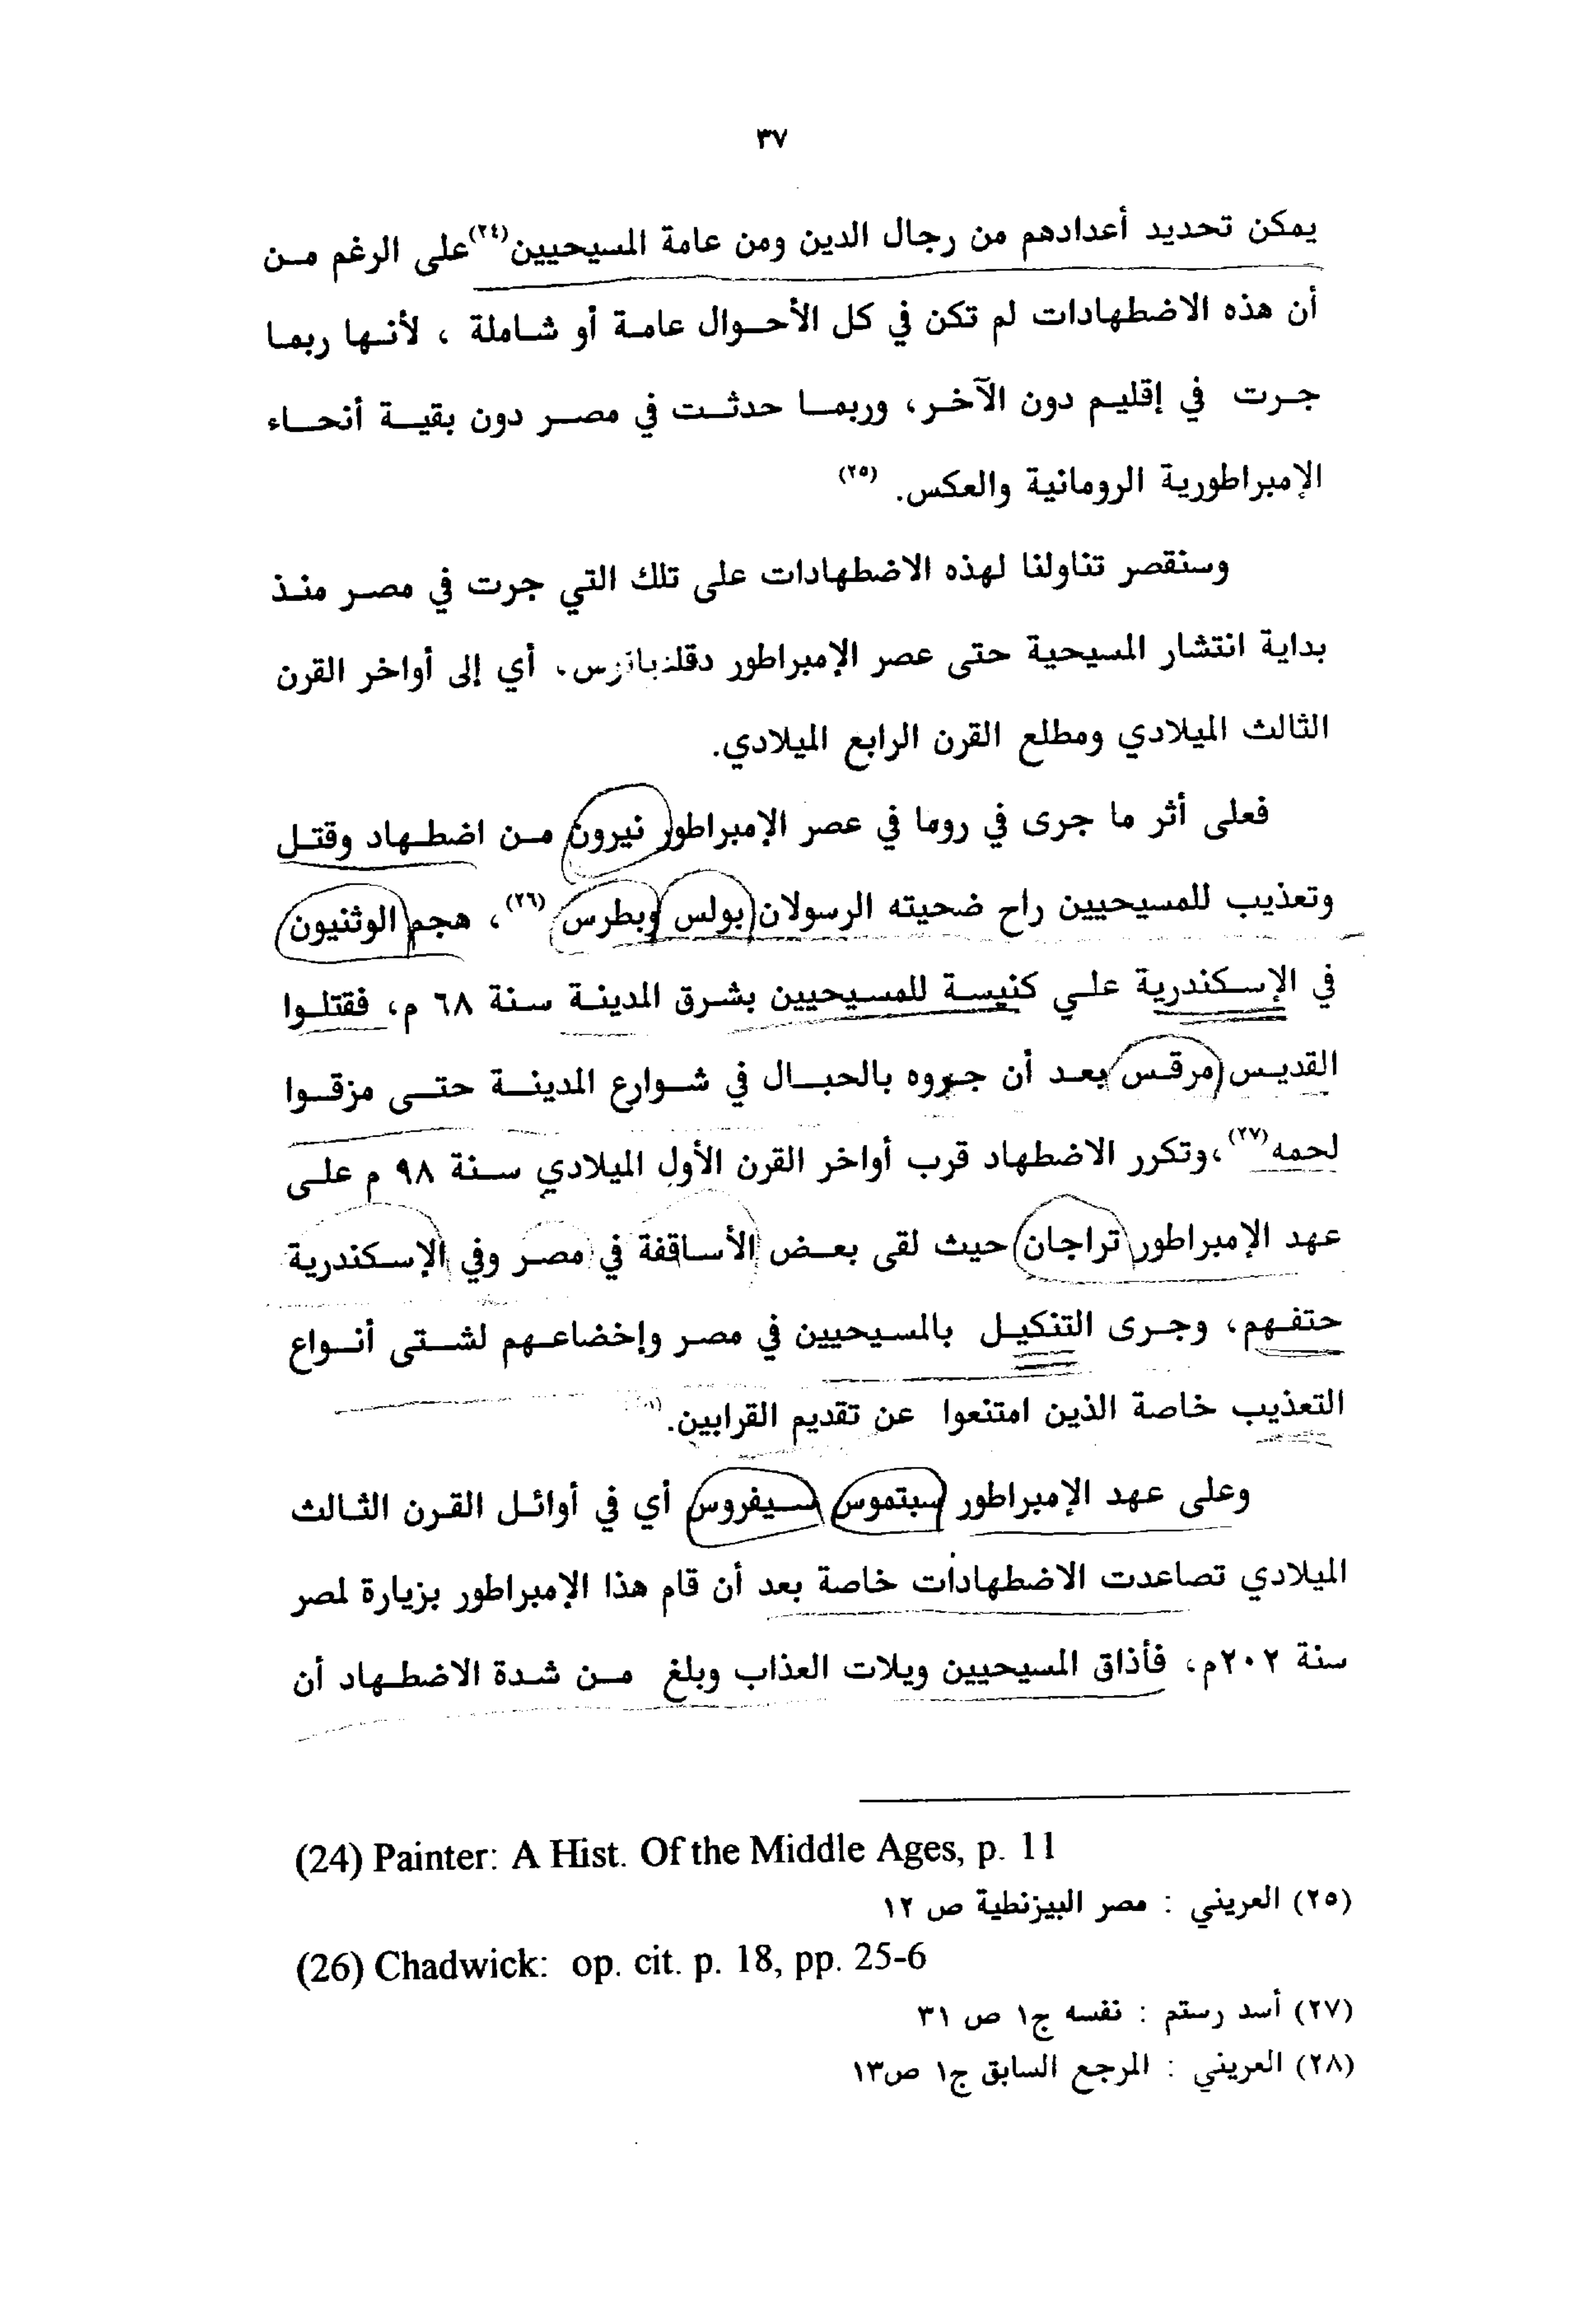 ٣٧
يمكن تحديد أعدادهم من رجال الدين ومن عامة المسيحيين(٢٤)على الرغم من
أن هذه الاضطهادات لم تكن في كل الأحوال عامة أو شاملة ، لأنها ربما
جرت في إقليم دون الآخر، وربما حدثت في مصر دون بقية أنحاء
الإمبراطورية الرومانية والعكس. (٢٥)
وسنقصر تناولنا لهذه الاضطهادات على تلك التي جرت في مصر منذ
بداية انتشار المسيحية حتى عصر الإمبراطور ، أي إلى أواخر القرن
الثالث الميلادي ومطلع القرن الرابع الميلادي.
فعلى أثر ما جرى في روما في عصر الإمبراطور نيرون من اضطهاد وقتل
وتعذيب للمسيحيين راح ضحيته الرسولان بولس وبطرس (٢٦)، هجم الوثنيون
في الإسكندرية علي كنيسة للمسيحيين بشرق المدينة سنة ٦٨ م، فقتلوا
القديس مرقس بعد أن جروه بالحبال في شوارع المدينة حتى مزقوا
لحمه(٢٧)،وتكرر الاضطهاد قرب أواخر القرن الأول الميلادي سنة ٩٨ م على
عهد الإمبراطور تراجان حيث لقى بعض الأساقفة في مصر وفي الإسكندرية
حتفهم، وجرى التنكيل بالمسيحيين في مصر وإخضاعهم لشتى أنواع
التعذيب خاصة الذين امتنعوا عن تقديم القرابين.
وعلى عهد الإمبراطور سبتموس سيفروس أي في أوائل القرن الثالث
الميلادي تصاعدت الاضطهادات خاصة بعد أن قام هذا الإمبراطور بزيارة لمصر
سنة ٢٠٢م، فأذاق المسيحيين ويلات العذاب وبلغ من شدة الاضطهاد أن
(24) Painter: A Hist. Of the Middle Ages, p. 11
(٢٥) العريني : مصر البيزنطية ص ١٢
(26) Chadwick: op. cit. p. 18, pp. 25-6
(٢٧) أسد رستم : نفسه ج١ ص ٣١
(٢٨) العريني : المرجع السابق ج١ ص١٣